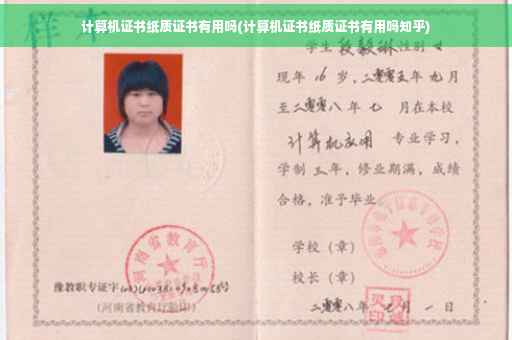 计算机证书纸质证书有用吗(计算机证书纸质证书有用吗知乎)
样本
学生段毅琳性别女
现年16岁，二零零五年九月
至二零零八年七月在本校
计算机应用 专业学习，
学制三年，修业期满，成绩
合格，准予毕业。
学校（章）
校长（章）
河南省教育厅
豫教职专证字
(河南省教育厅验印)
二零零八年七月一日